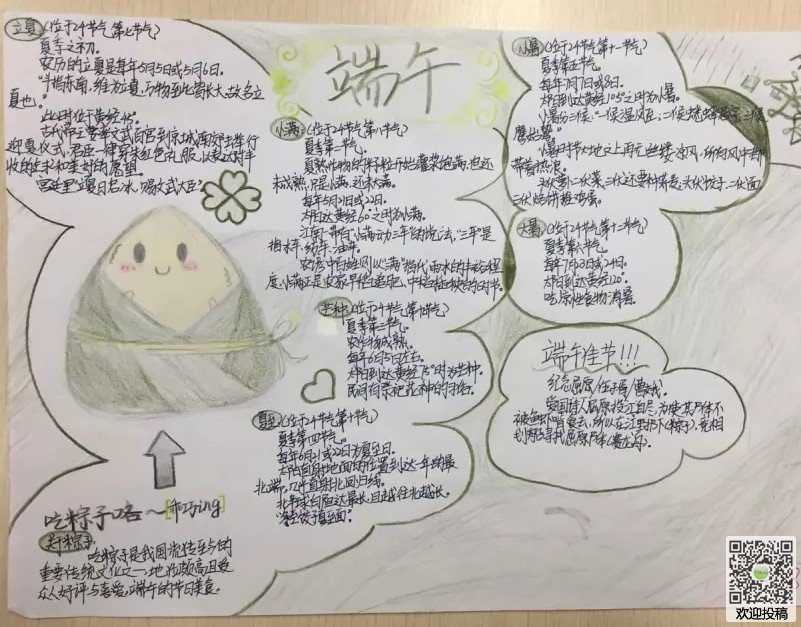 立夏(位于24节气第七节气)
夏季之初。
农历的立夏是每年5月5日或5月6日。
"斗指东南,维为立夏,万物至此皆长大,故名立
夏也。"
此时位于黄经45°。
古代帝王要率文武百官到京城南郊去举行
迎夏仪式,君臣一律穿朱红色礼服,以表达对丰
收的企求和美好的愿望。
宫廷里"立夏日启冰,赐文武大臣"
端午
小满(位于24节气第八节气)
夏季第二节气。
夏熟作物的籽粒开始灌浆饱满,但还
未成熟,只是小满,还未大满。
每年5月21日或22日。
太阳到达黄经60°之时为小满。
江南一带有"小满动三车"的说法,"三车"是
指水车、纺车、油车。
农谚中已经则以"满"指代雨水的丰盈程
度,小满正是农家早稻追肥,中稻插秧的时节。
芒种(位于24节气第九节气)
夏季第三节气。
农作物成熟。
每年6月5日左右
太阳到达黄经75°时为芒种。
民间有祭祀花神的习俗。
夏至(位于24节气第十节气)
夏季第四节气。
每年6月21或22日为夏至日。
太阳直射地面的位置到达一年的最
北端,几乎直射北回归线。
北半球白昼达最长,且越往北越长。
"冬至饺子夏至面"
小暑(位于24节气第十一节气)
夏季第五节气。
每年7月7日或8日。
太阳到达黄经105°之时为小暑。
小暑分三候:"一候温风至;二候蟋蟀居宇;三候
鹰始鸷"
小暑时节大地上再无一丝凉风,所有风中都
带着热浪。
头伏萝卜二伏菜,三伏还要种荞麦,头伏饺子,二伏面
三伏烙饼摊鸡蛋。
大暑(位于24节气第十二节气)
夏季第六节气。
每年7月23日或24日。
太阳到达黄经120°。
吃凉性食物消暑。
端午佳节!!!
纪念屈原/伍子胥/曹娥。
爱国诗人屈原投江自尽,为使其尸体不
被鱼虾啃食去,所以在江里扔下(粽子),竞相
划船寻找屈原尸体(赛龙舟)。
吃粽子咯~[乖巧ing]
关于粽子
吃粽子是我国流传至今的
重要传统文化之一,地位颇高且受
众人好评与喜爱,端午的节日美食。
欢迎投稿